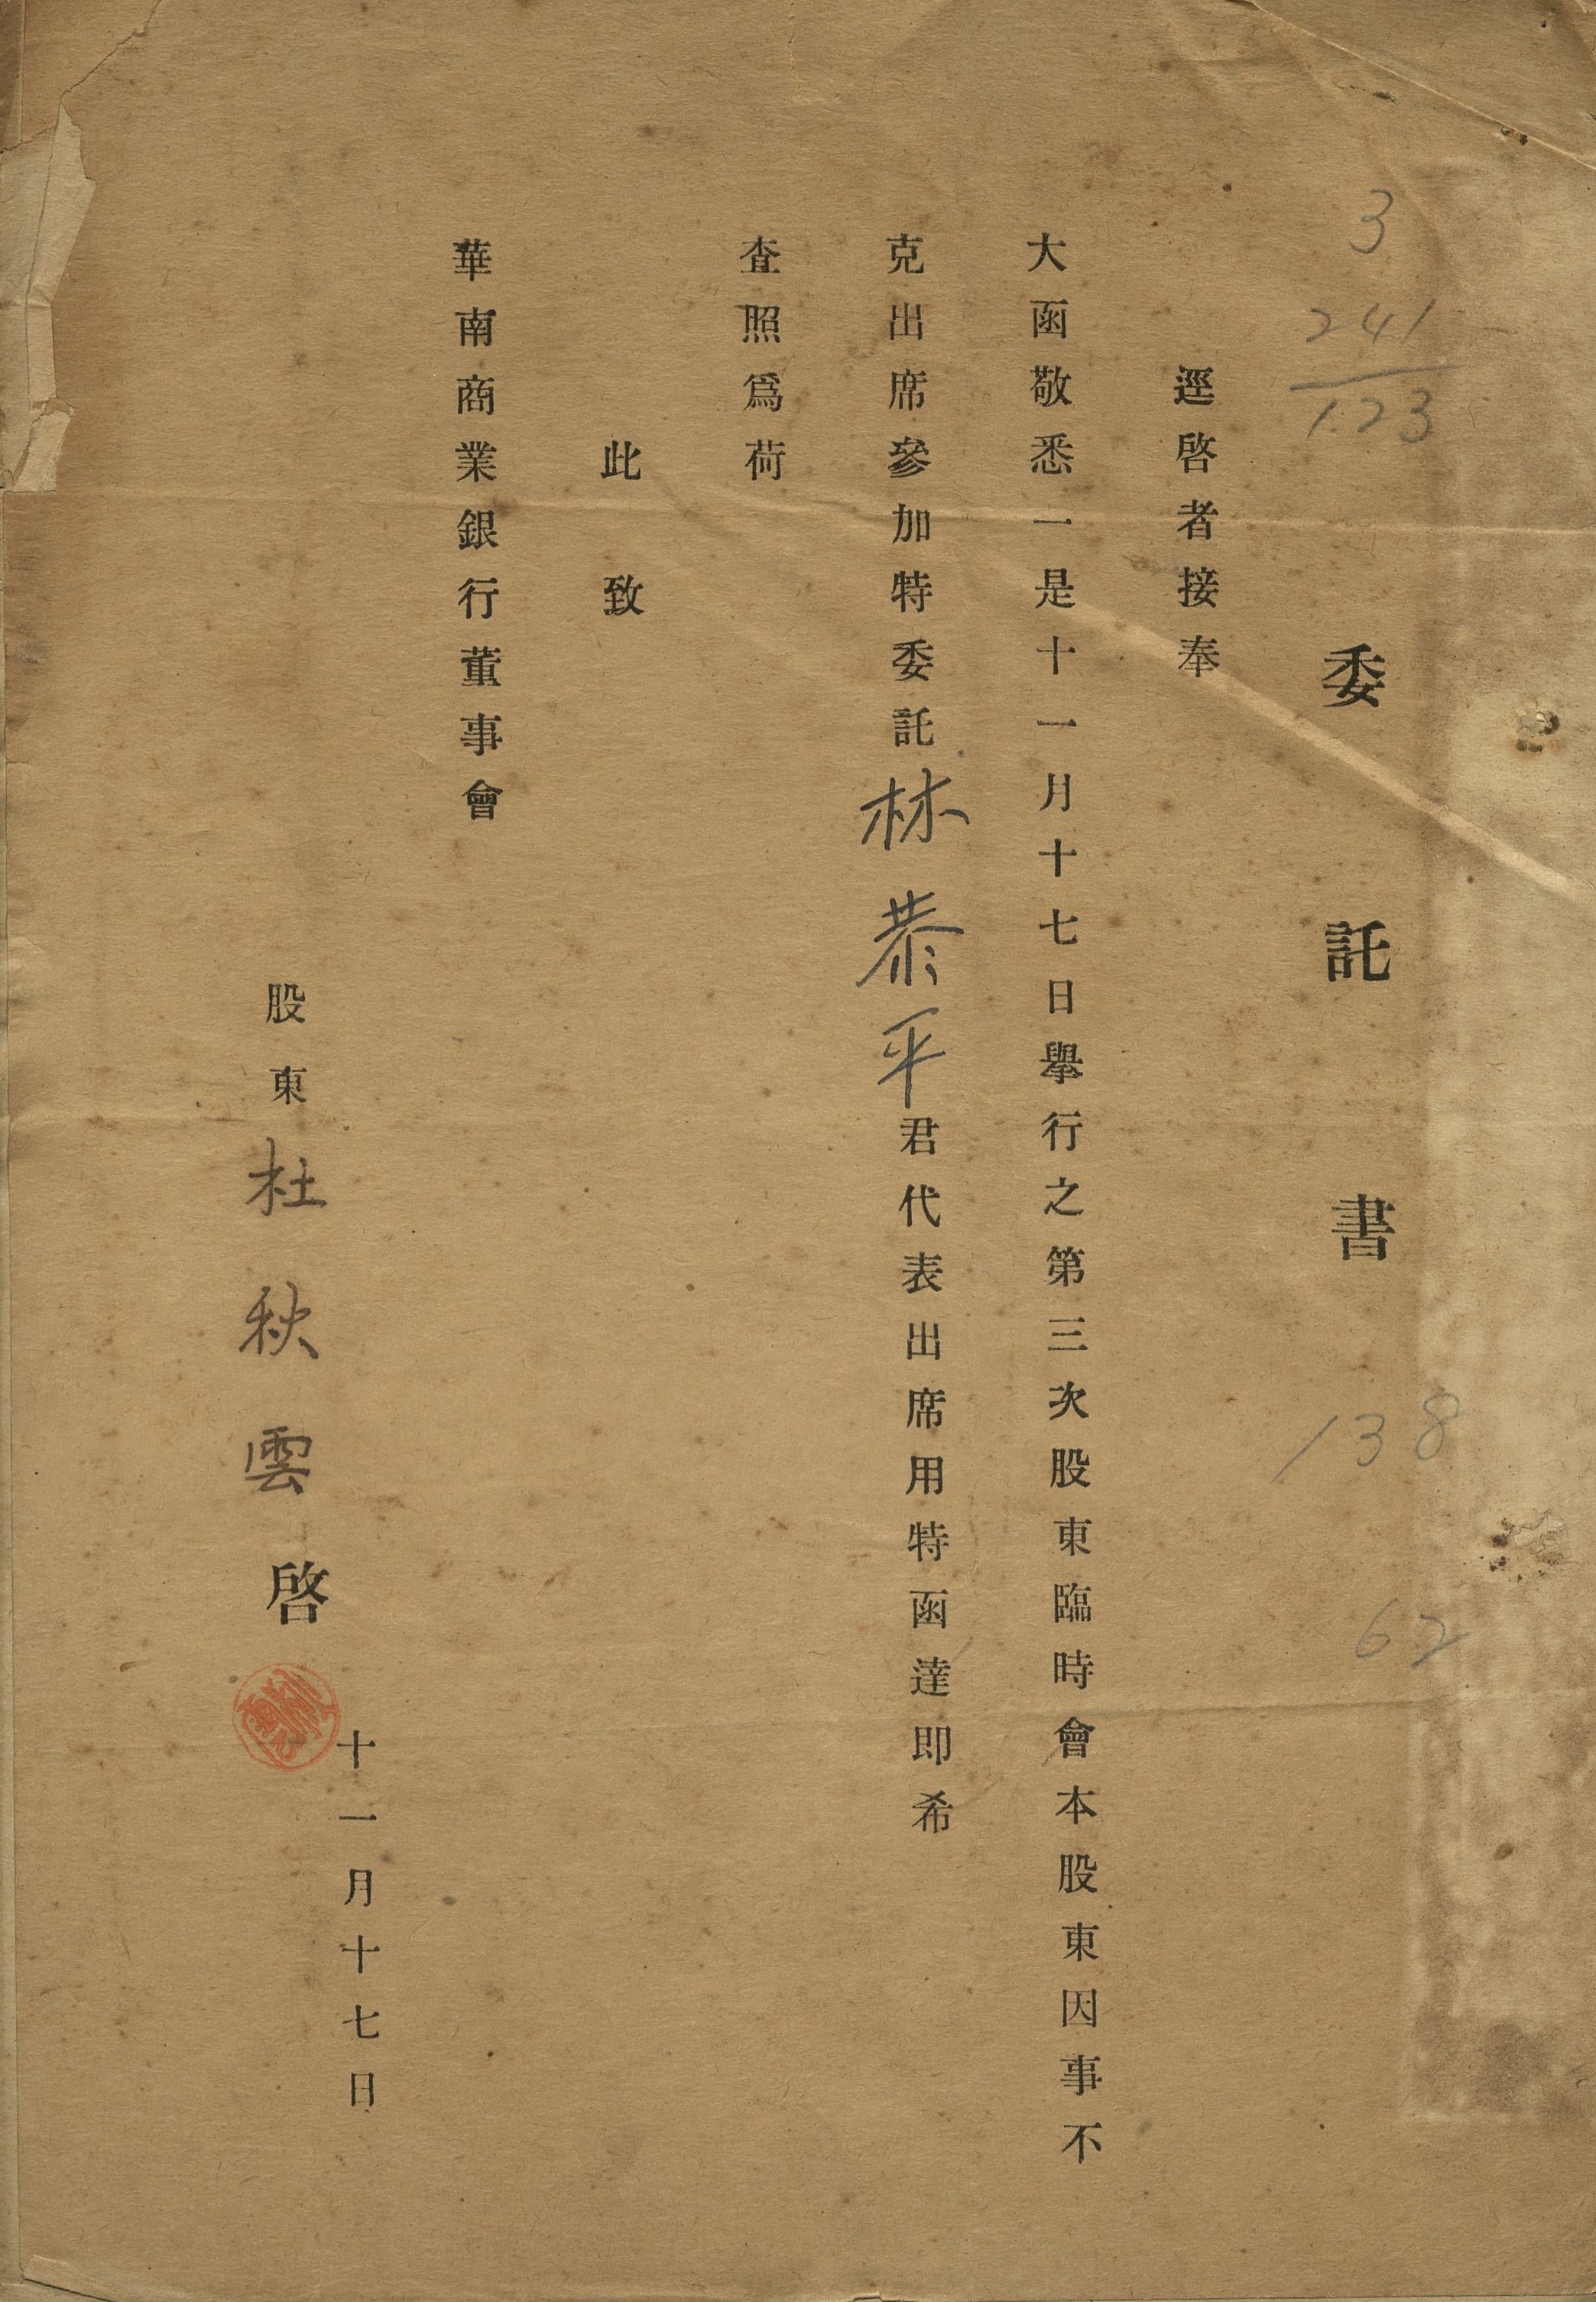 委託書
逕啓者接奉
大函敬悉一是十一月十七日擧行之第三次股東臨時會本股東因事不
克出席參加特委託林恭平君代表出席用特函達即希
查照爲荷
此致
華南商業銀行董事會
股東杜秋雲啓
十一月十七日
3
241
123
138
62